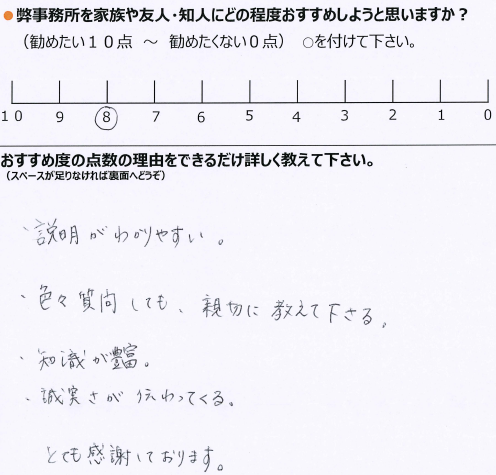 ●弊事務所を家族や友人・知人にどの程度おすすめしようと思いますか？
（勧めたい１０点　～　勧めたくない０点）　○を付けて下さい。
10 9 8 7 6 5 4 3 2 1 0
おすすめ度の点数の理由をできるだけ詳しく教えて下さい。
（スペースが足りなければ裏面へどうぞ）
・説明がわかりやすい。
・色々質問しても、親切に教えて下さる。
・知識が豊富。
・誠実さが伝わってくる。
とても感謝しております。